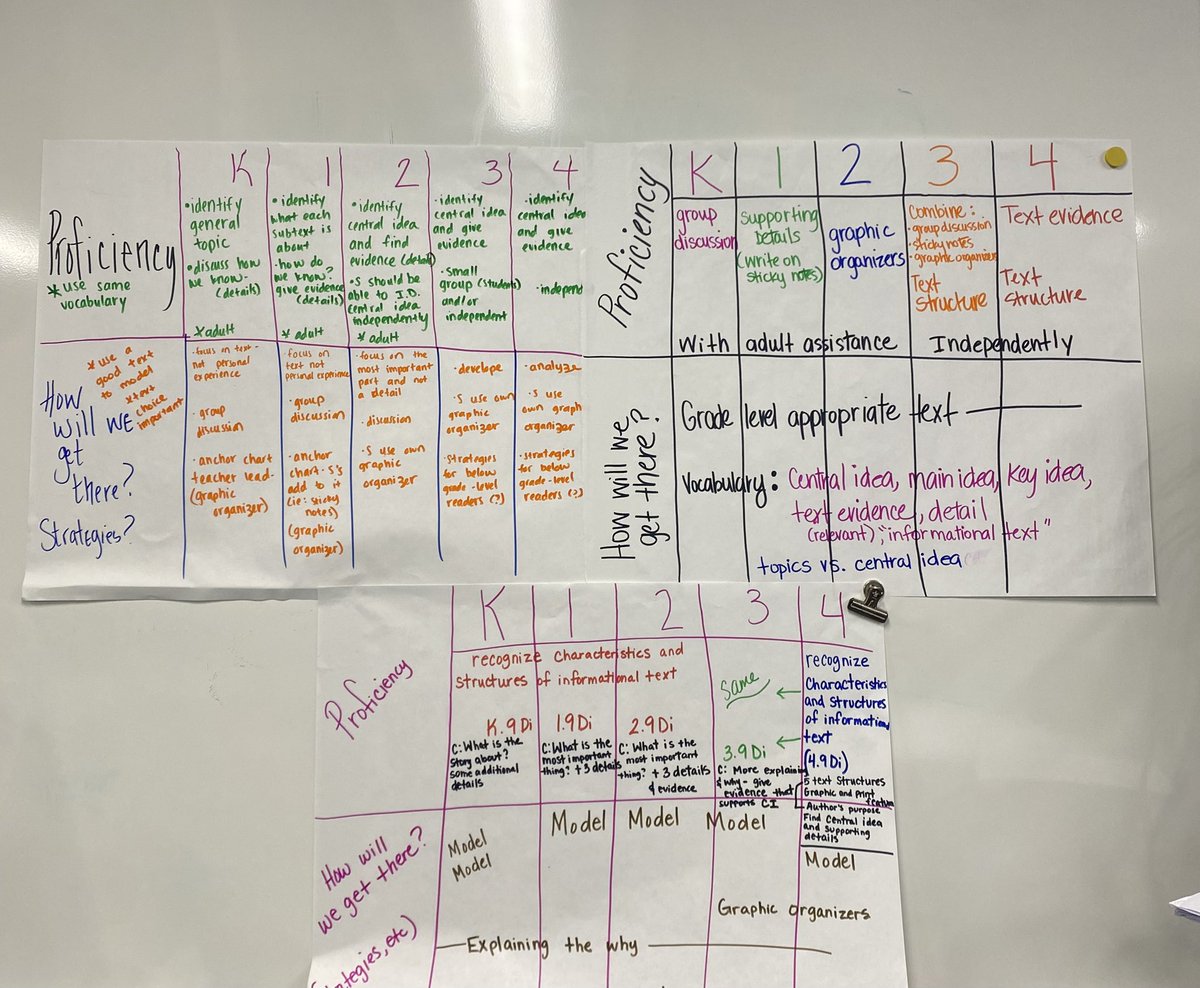 K 1 2 3 4
Proficiency
* use same
vocabulary
• identify
general
topic
• discuss how
we know.
(details)
* adult
• identify
what each
subtext is
about
• how do
we know?
give evidence
(details)
* adult
• identify
central idea
and find
evidence (detail)
• S should be
able to I.D.
central idea
independently
* adult
• identify
central idea
and give
evidence
• small
group (students)
and/or
independent
• identify
central idea
and give
evidence
• independ
How
will we
get
there?
Strategies?
* use a
good text
to model
* text
choice
important
• focus on text-
not personal
experience
• group
discussion
• anchor chart
teacher lead-
(graphic
organizer)
• focus on
text not
personal experience
• group
discussion
• anchor
chart - S's
add to it
(ie: sticky
notes)
(graphic
organizer)
• focus on the
most important
part and not
a detail
• discussion
• S use own
graphic
organizer
• develope
• S use own
graphic
organizer
• strategies
for below
grade-level
readers (?)
• analyze
• S use
own graph
organizer
• strategies
for below
grade-level
readers (?)
K 1 2 3 4
Proficiency
group
discussion
supporting
details
(write on
sticky notes)
graphic
organizers
Combine:
• group discussion
• sticky notes
• graphic organizers
Text
structure
Text evidence
Text
structure
With adult assistance Independently
How will we
get there?
Grade level appropriate text
Vocabulary: Central idea, main idea, Key idea,
text evidence, detail
(relevant), "informational text"
topics vs. central idea
K 1 2 3 4
Proficiency
recognize characteristics and
structures of informational text
K.9Di
C: What is the
story about?
some additional
details
1.9Di
C: What is the
most important
thing? + 3 details
2.9Di
C: What is the
most important
thing? + 3 details
& evidence
same
3.9Di
C: More explaining
& why - give
evidence that
supports CI
recognize
Characteristics
and structures
of information
text
(4.9Di)
5 text structures
Graphic and Print
feature
Author's purpose
Find Central idea
and supporting
details
How will
we get there?
(strategies, etc)
Model
Model
Model
Model
Model
Model
Graphic organizers
Explaining the why